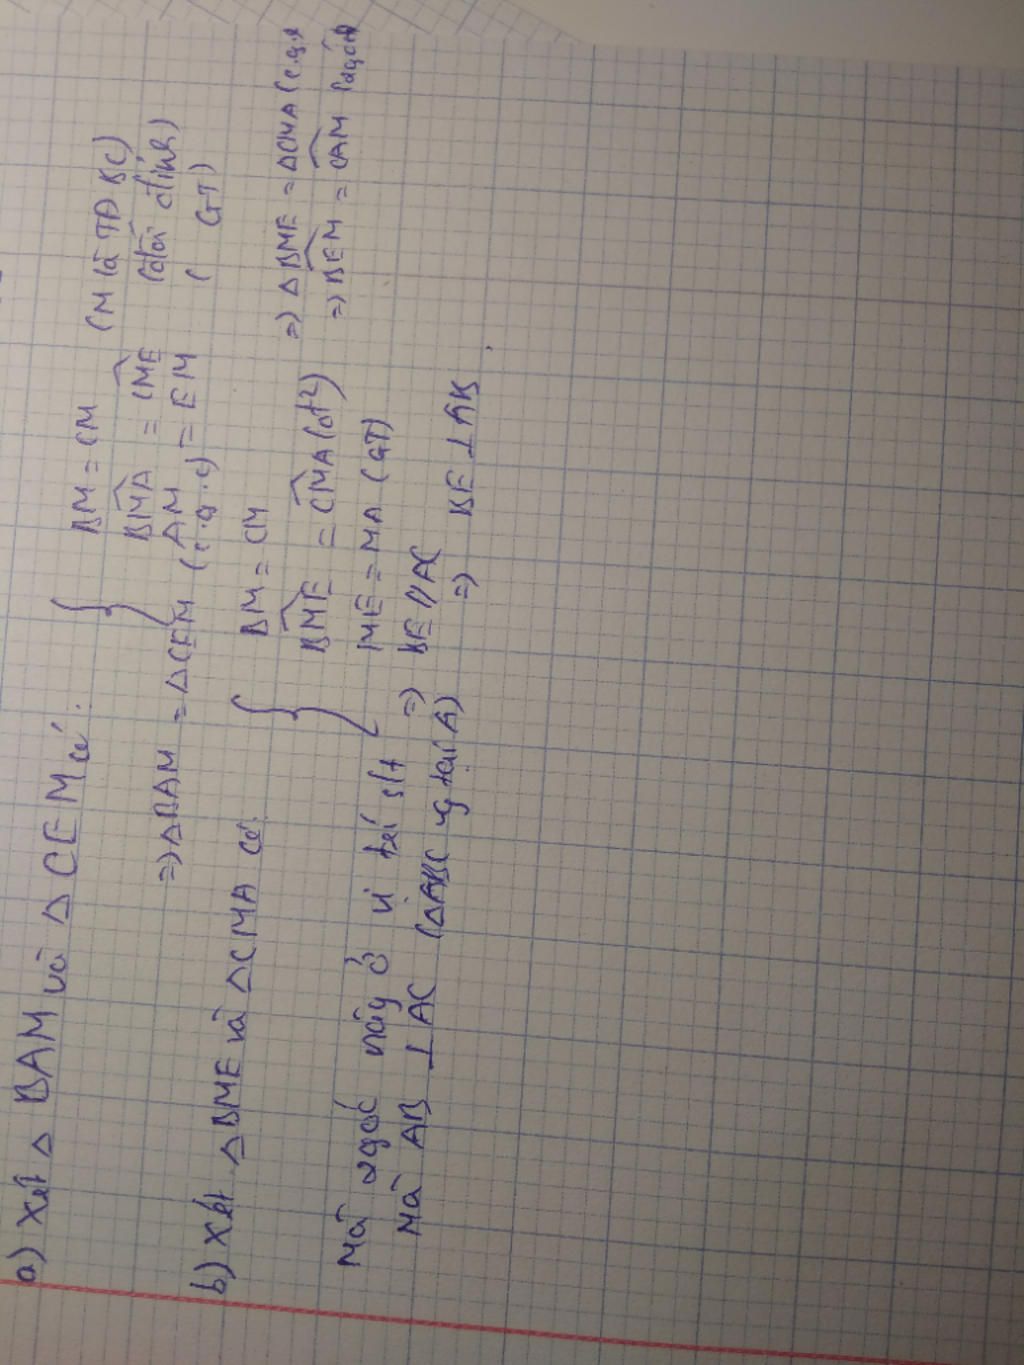 a) Xét Δ BAM và Δ CEM có:
BM = CM (M là TĐ BC)
BMA = CME (đối đỉnh)
AM = EM (GT)
=> ΔBAM = ΔCEM (c.g.c)
b) Xét ΔBME và ΔCMA có:
BM = CM
BME = CMA (đđ)
ME = MA (GT)
=> ΔBME = ΔCMA (c.g.c
=> BEM = CAM (2góc
Mà 2góc này ở vị trí slt => BE // AC
Mà AB ⊥ AC (ΔABC vg tại A) => BE ⊥ AB